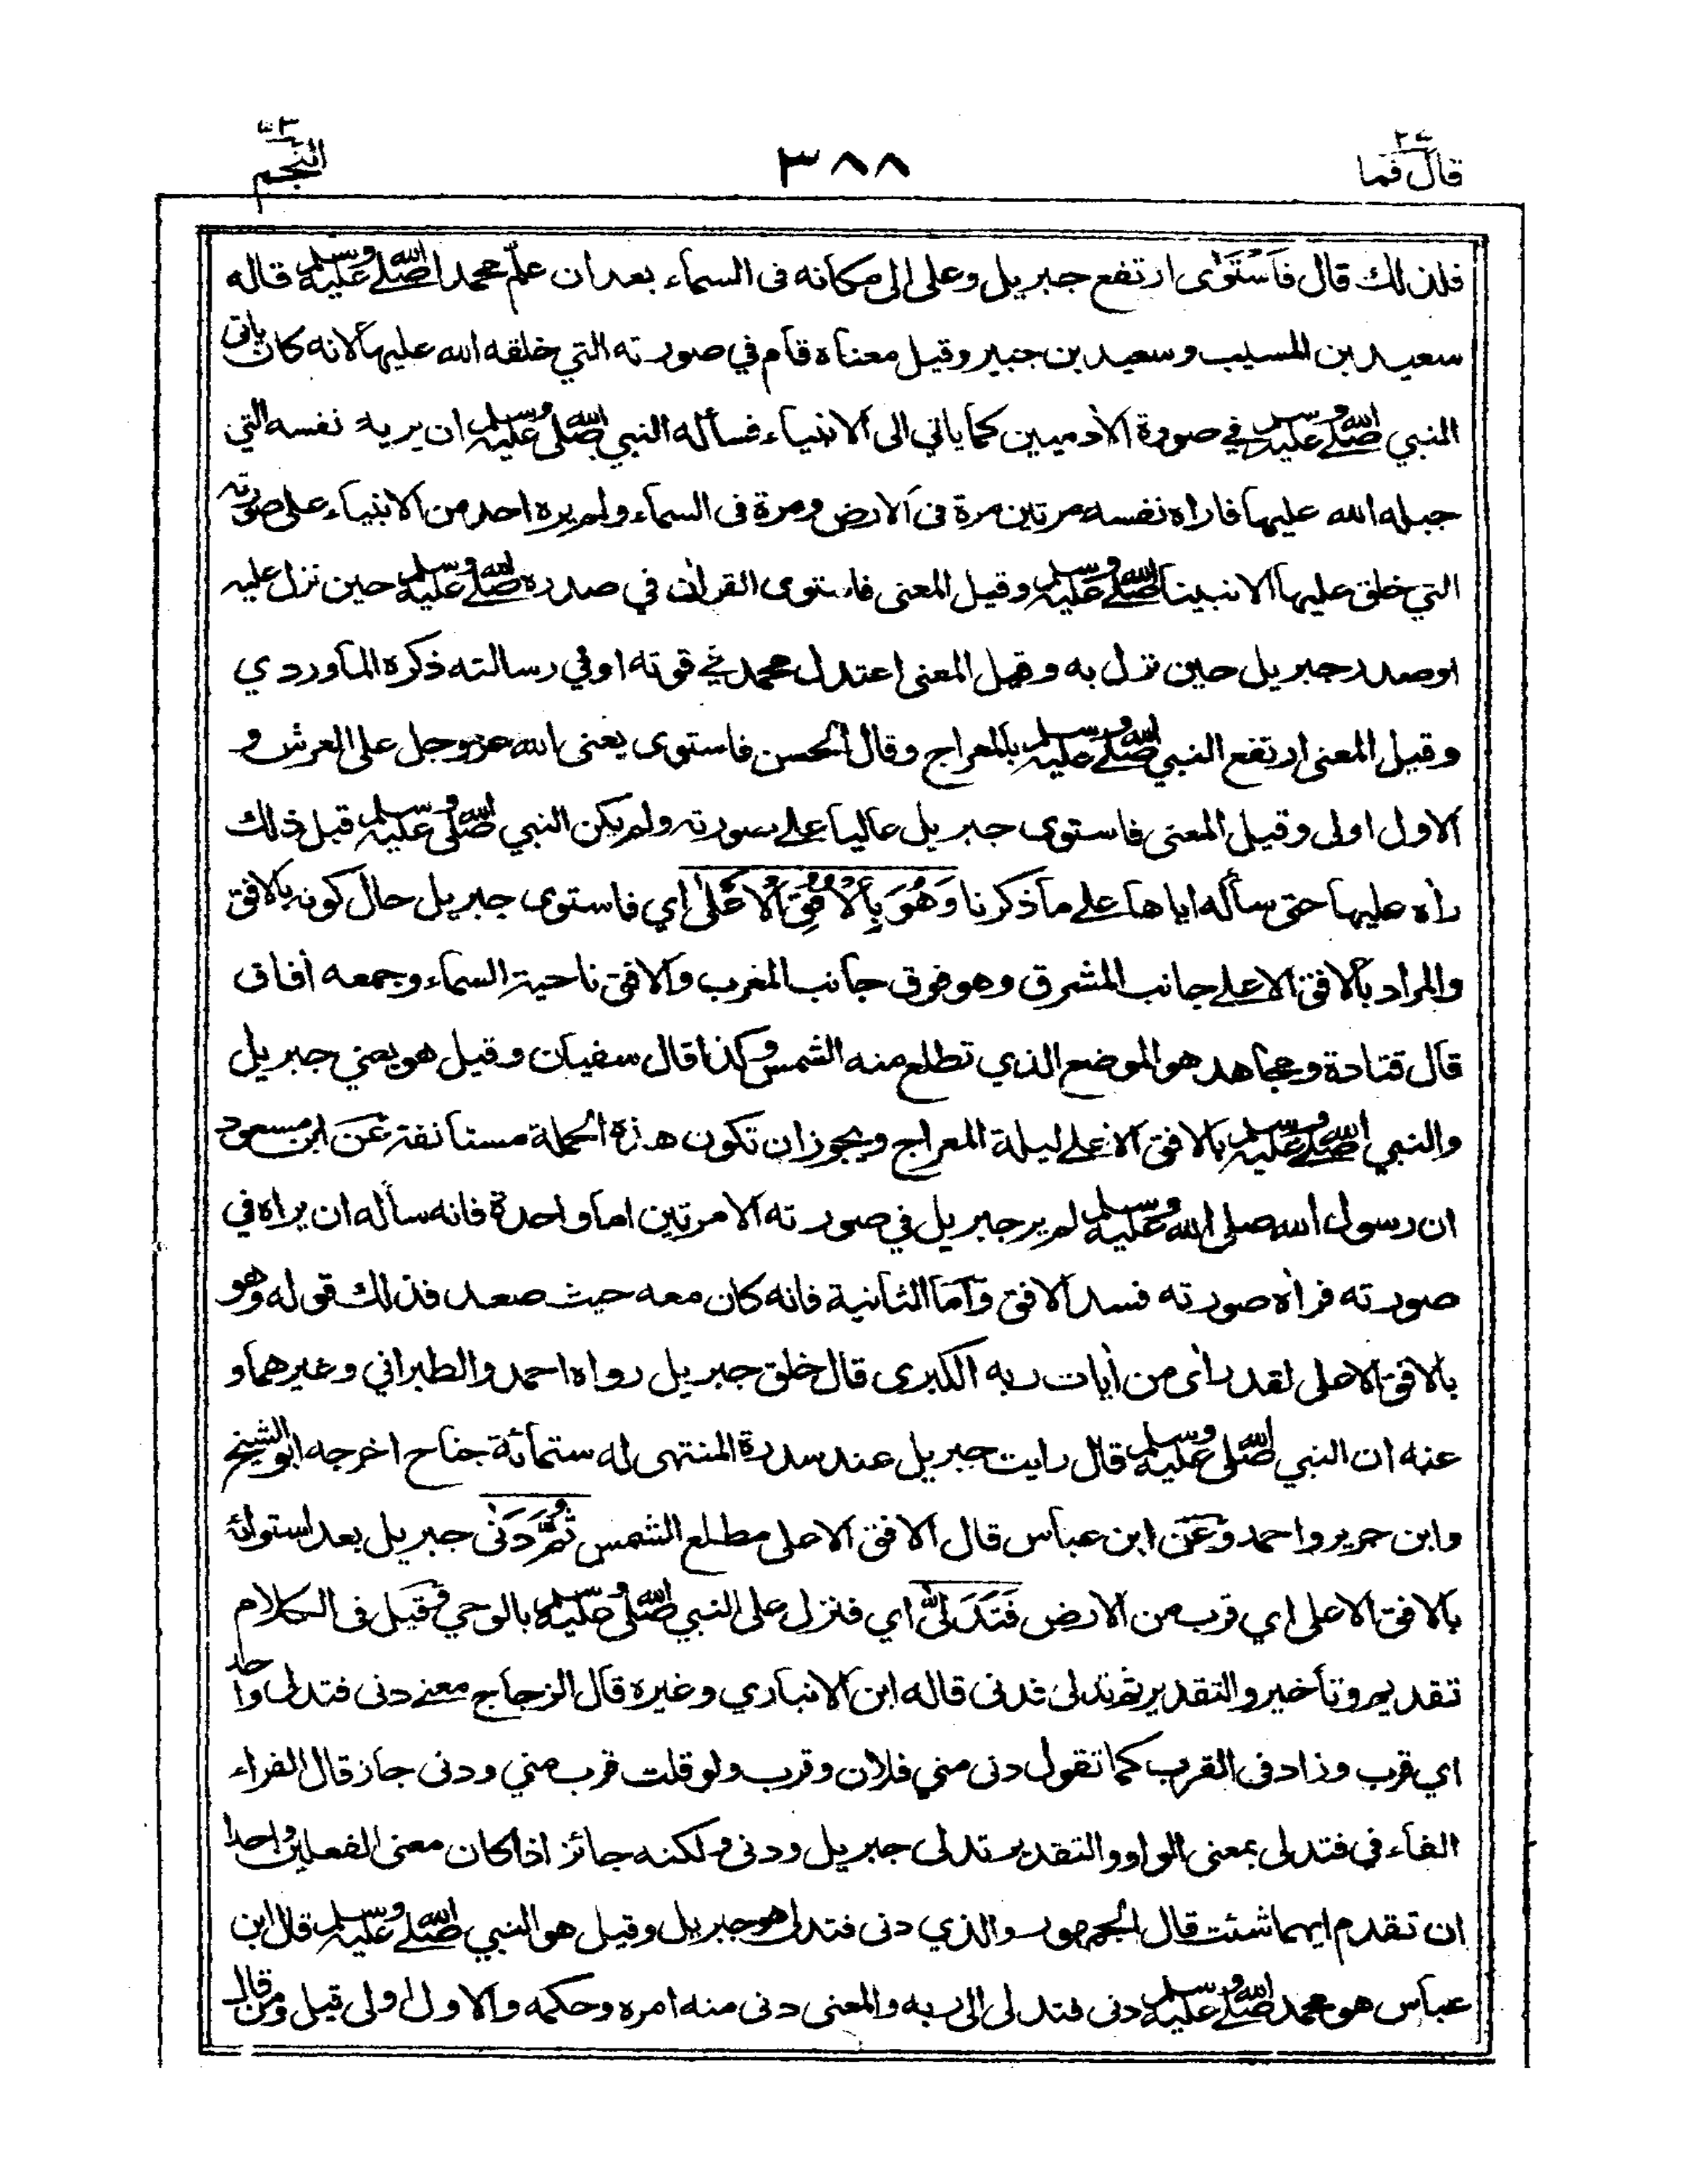 قال فما ٢٧
٣٨٨
النجم ٥٣
فلذلك قال فَاسْتَوٰى ارتفع جبريل وعلى الى مكانه فى السماء بعد ان علّم محمدا صلى الله عليه وسلم قاله
سعيد بن المسيب وسعيد بن جبير وقيل معناه قام في صورته التي خلقه الله عليها لانه كان ياتى
النبي صلى الله عليه وسلم في صورة الأدميين كما ياتي الى الانبياء فسأله النبي صلى الله عليه وسلم ان يريه نفسه التي
جبله الله عليها فاراه نفسه مرتين مرة فى الارض ومرة فى السماء ولم يره احد من الانبياء على صورته
التي خلق عليها الا نبينا صلى الله عليه وسلم وقيل المعنى فاستوى القرأن في صدره صلى الله عليه وسلم حين نزل عليه
او صدر جبريل حين نزل به وقيل المعنى اعتدل محمد في قوته او في رسالته ذكره الماوردي
وقيل المعنى ارتفع النبي صلى الله عليه وسلم بالمعراج وقال الحسن فاستوى يعنى الله عزوجل على العرش و
الاول اولى وقيل المعنى فاستوى جبريل عاليا على صورته ولم يكن النبي صلى الله عليه وسلم قبل ذلك
رأه عليها حتى سأله اياها على ما ذكرنا وَهُوَ بِالْاُفُقِ الْاَعْلٰى اي فاستوى جبريل حال كونه بالافق
والمراد بالافق الاعلى جانب المشرق وهو فوق جانب المغرب والافق ناحية السماء وجمعه أفاق
قال قتادة ومجاهد هو الموضع الذي تطلع منه الشمس وكذا قال سفيان وقيل هو يعني جبريل
والنبي صلى الله عليه وسلم بالافق الاعلى ليلة المعراج ويجوز ان تكون هذه الجملة مستانفة عن ابن مسعود
ان رسول الله صلى الله عليه وسلم لم ير جبريل في صورته الا مرتين اما واحدة فانه سأله ان يراه في
صورته فرأه صورته فسد الافق واما الثانية فانه كان معه حيث صعد فذلك قوله وهو
بالافق الاعلى لقد رأى من أيات ربه الكبرى قال خلق جبريل رواه احمد والطبراني وغيرهما و
عنه ان النبي صلى الله عليه وسلم قال رايت جبريل عند سدرة المنتهى له ستمائة جناح اخرجه ابو الشيخ
وابن جرير واحمد وعن ابن عباس قال الافق الاعلى مطلع الشمس ثُمَّ دَنٰى جبريل بعد استوائه
بالافق الاعلى اي قرب من الارض فَتَدَلّٰى اي فنزل على النبي صلى الله عليه وسلم بالوحي وقيل فى الكلام
تقديم وتأخير والتقدير ثم تدلى فدنى قاله ابن الانباري وغيره قال الزجاج معنى دنى فتدلى واحد
اي قرب وزاد فى القرب كما تقول دنى مني فلان وقرب ولو قلت قرب مني ودنى جاز قال الفراء
الفاء في فتدلى بمعنى الواو والتقدير تدلى جبريل ودنى ولكنه جائز اذا كان معنى الفعلين واحدا
ان تقدم ايهما شئت قال الجمهور والذي دنى فتدلى هو جبريل وقيل هو النبي صلى الله عليه وسلم قال ابن
عباس هو محمد صلى الله عليه وسلم دنى فتدلى الى ربه والمعنى دنى منه امره وحكمه والاول اولى قيل ومن قال